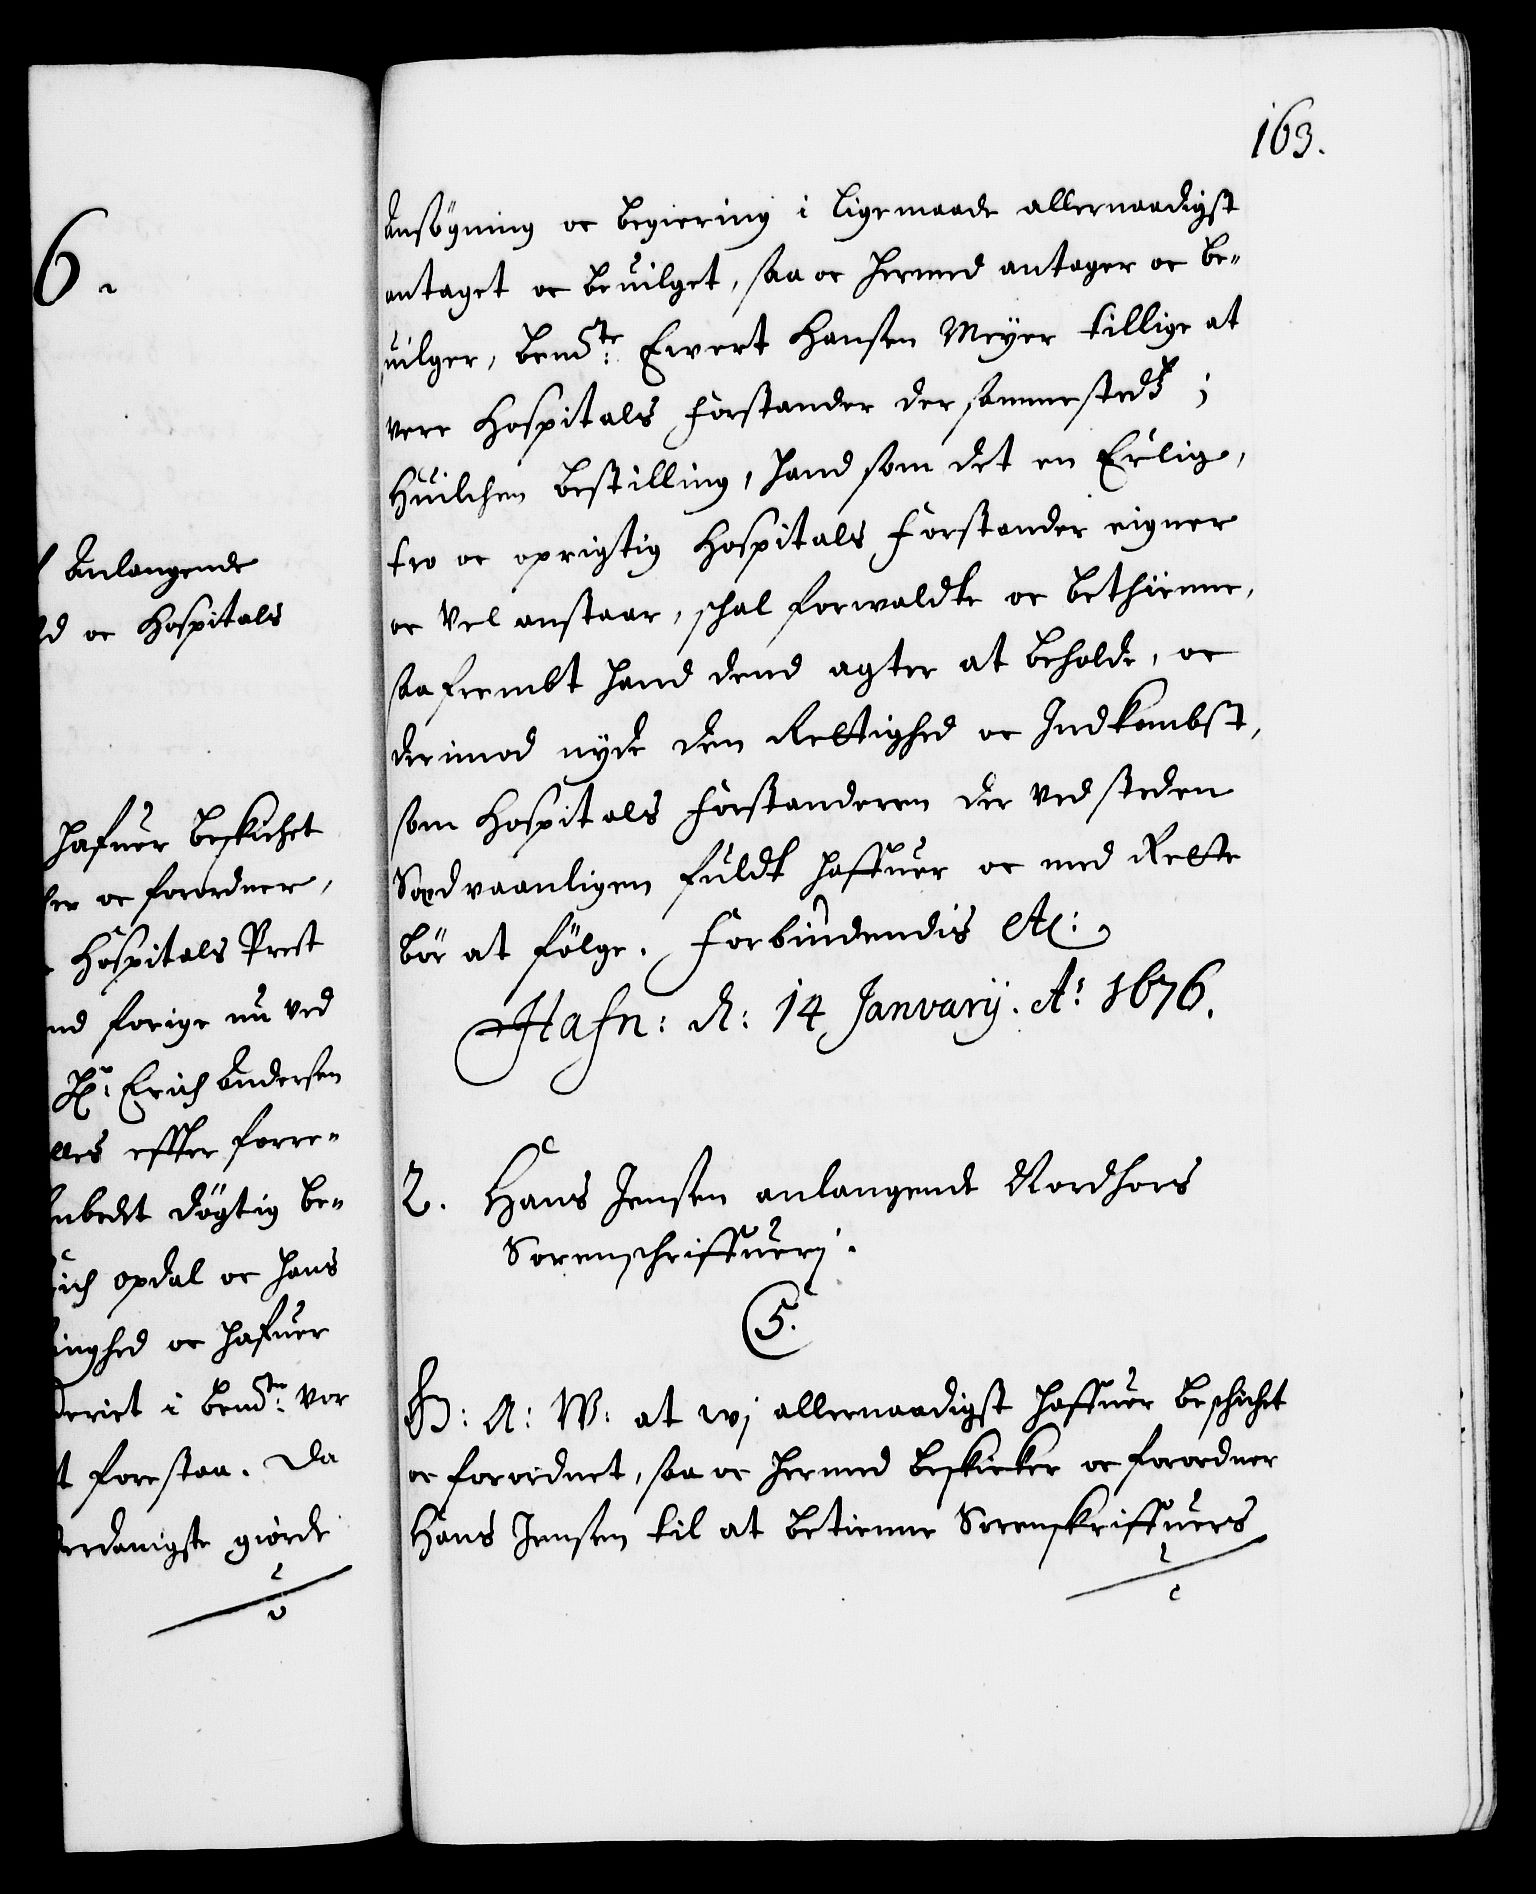 6.
Anlangende
d oc Hospitals
hafuer beskichet
er oc forordner,
Hospitals Prest
nd forige nu ved
Hr: Erich Andersen
lles effter forre-
nbedet døgtig be-
ich Opdal oc hans
inghed oc hafuer
deriet i bemte: vor
t forestaa. Da
erdanigste giorde
163.
Ansøgning oc begiering i ligemaade allernaadigst
antaget oc beuilget, saa oc hermed antager oc be-
uilger, bemte: Evert Hansen Meyer tillige at
vere Hospitals forstander der sammestedtz;
Huilchen bestilling, hand som det en Erlig,
tro oc oprigtig Hospitals forstander eigner
oc vel anstaar, schal forwaldte oc bethienne,
saafrembt hand dend agter at beholde, oc
derimod nyde den Rettighed oc Indkombst,
som Hospitals forstanderen der ved steden
Sædvaanligen fuldt haffuer oc med Rette
bør at følge. Forbindendis etc:
Hafn: d: 14 Januarij. Ao 1676.
2. Hans Jensen anlangende Nordhors
Sorenschriffuerj.
C5.
G: A: W: at wj allernaadigst haffuer beschichet
oc forordnet, saa oc hermed beskicker oc forordner
Hans Jensen til at betienne Sorenskriffuers